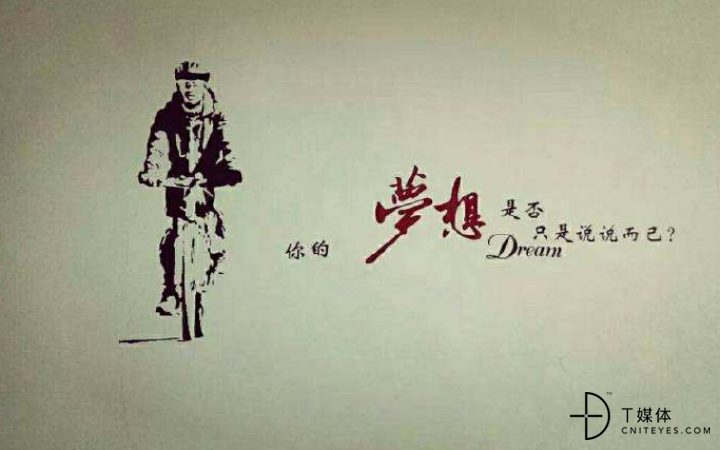 你的夢想是否
只是说说而已？
Dream
T媒体
CNITEYES.COM